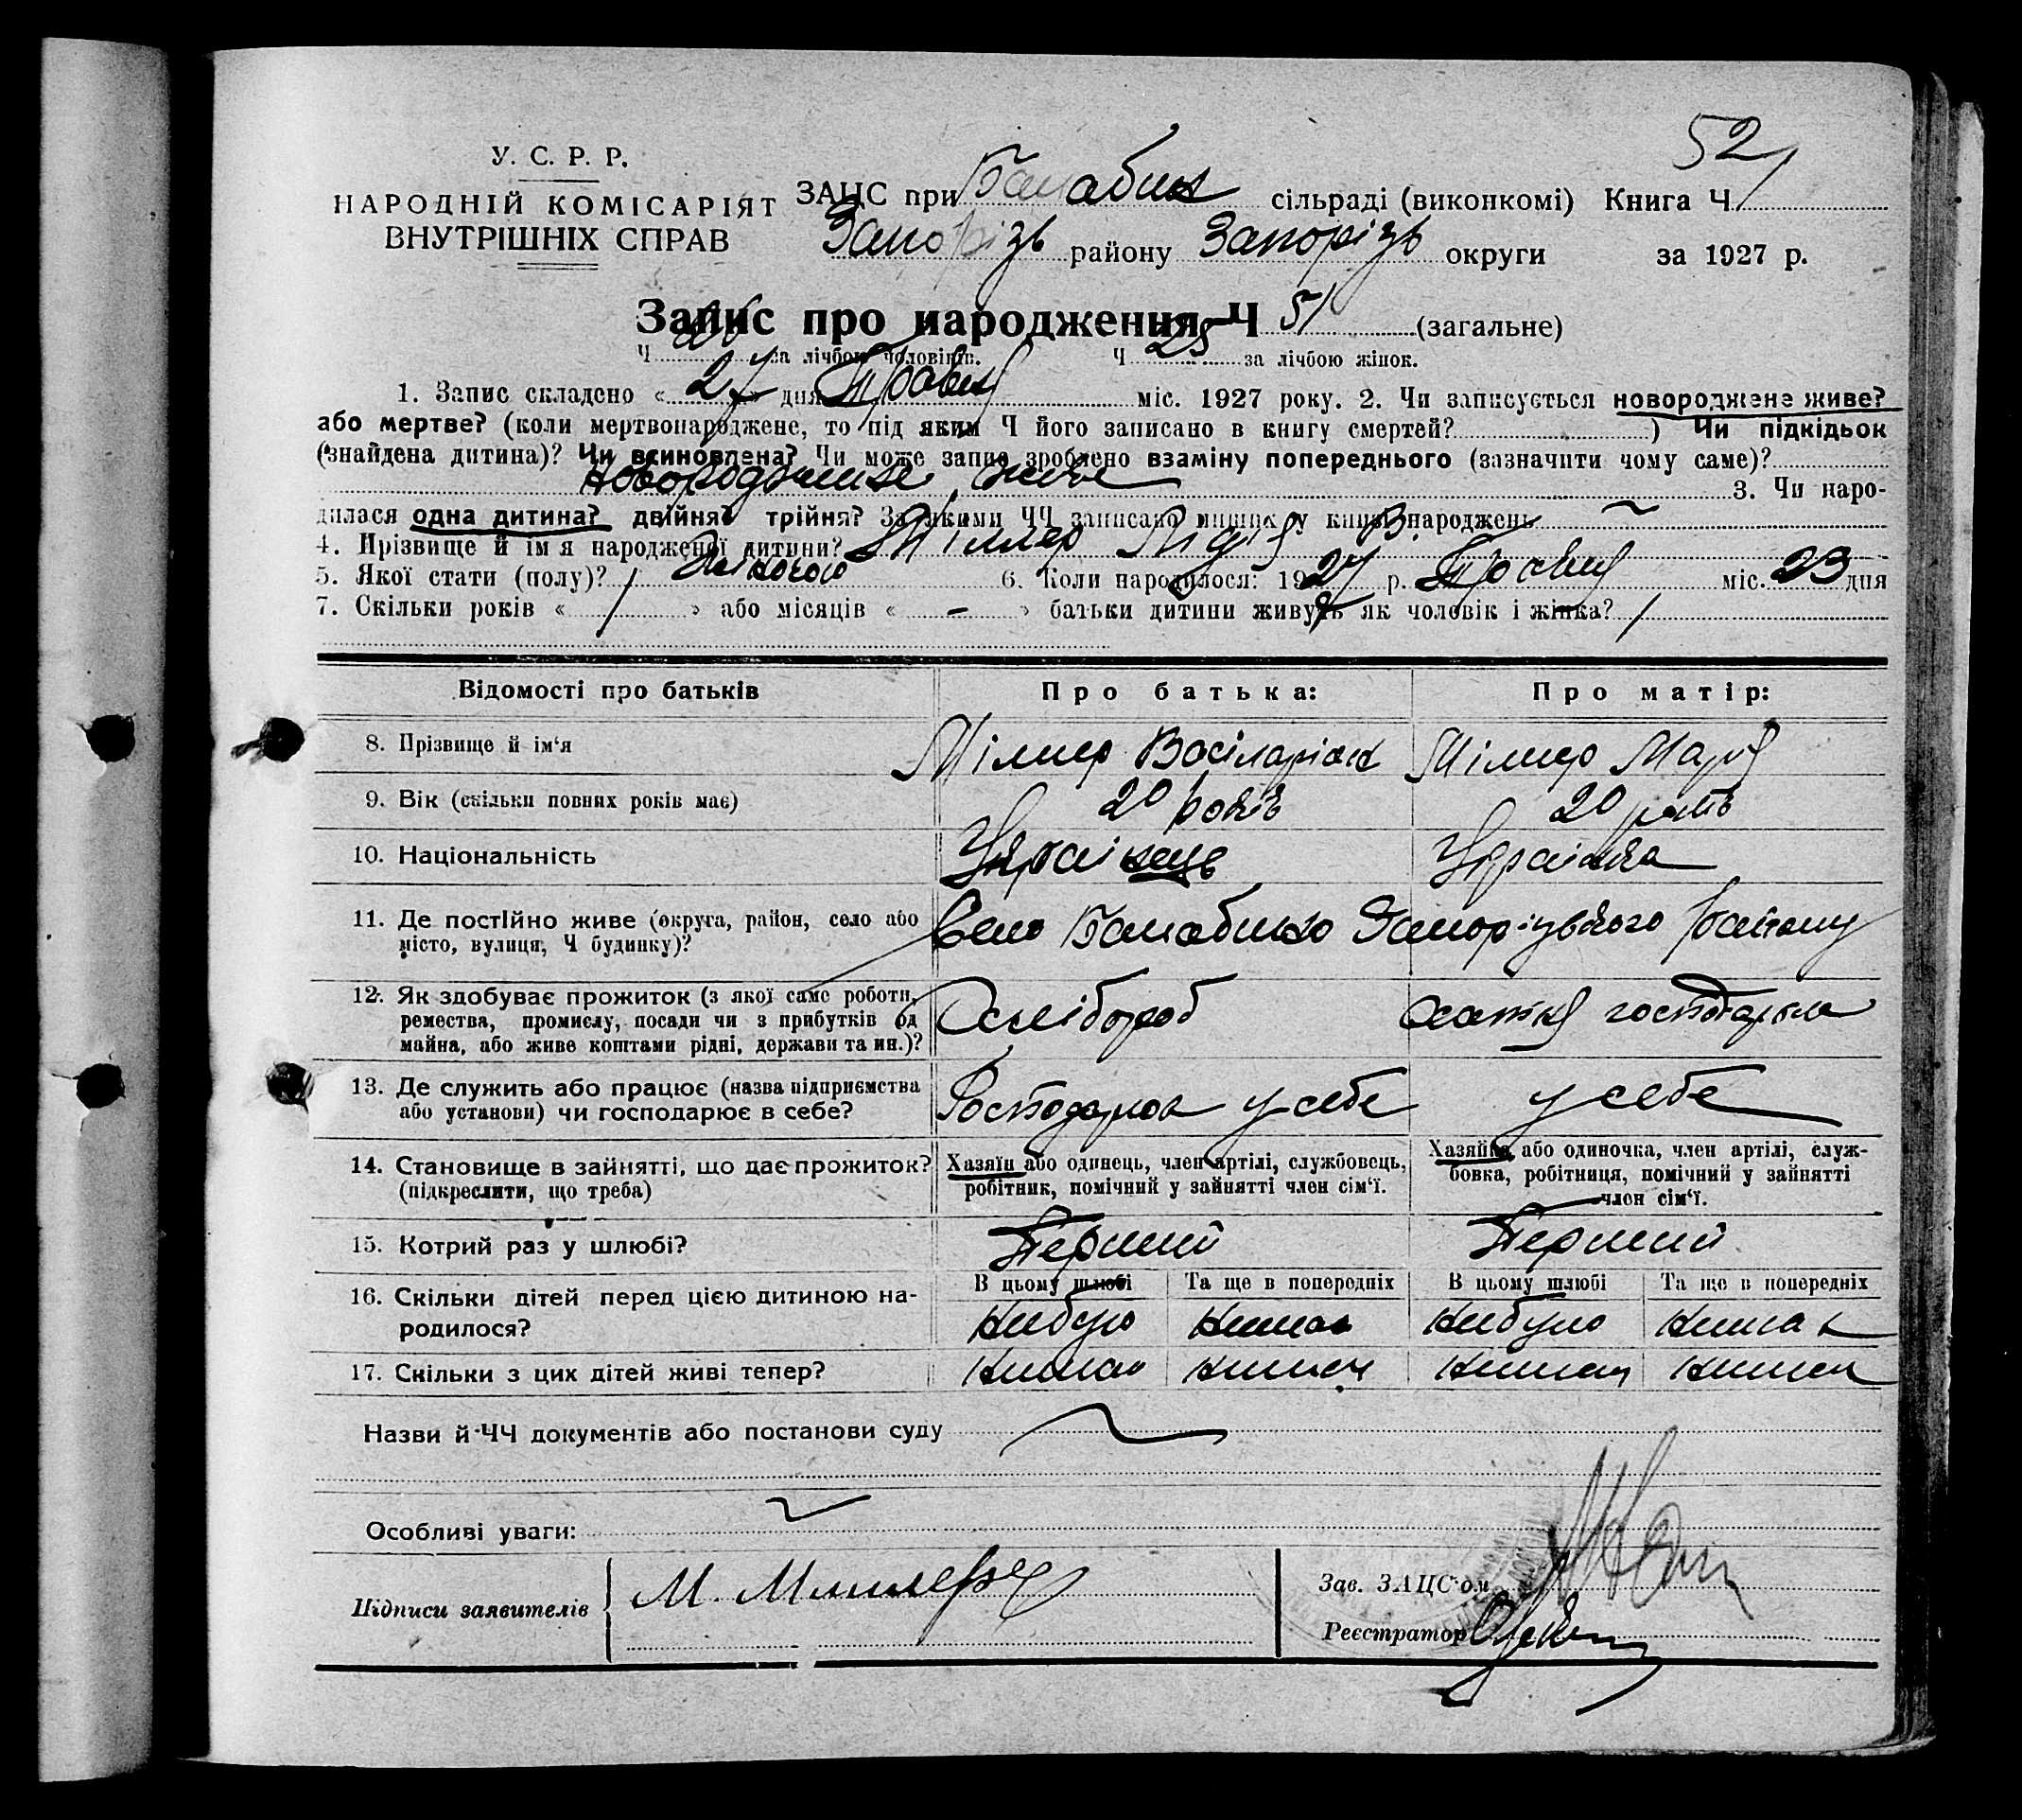 52
У. С. Р. Р.
НАРОДНІЙ КОМІСАРІЯТ
ВНУТРІШНІХ СПРАВ
ЗАЦС при Балабин сільраді (виконкомі) Книга Ч.
Запорізь району Запорізь округи за 1927 р.
Запис про народження Ч 51 (загальне)
Ч за лічбою чоловіків. Ч 25 за лічбою жінок.
1. Запис складено « 27 » дня Травня міс. 1927 року. 2. Чи записується новороджене живе?
або мертве? (коли мертвонароджене, то під яким Ч його записано в книгу смертей? ) Чи підкідьок
(знайдена дитина)? Чи всиновлена? Чи може запис зроблено взаміну попереднього (зазначити чому саме)?
Новороджене живе 3. Чи наро-
дилася одна дитина? двійня? трійня? За якими ЧЧ записано инших у книзі народжень
4. Прізвище й ім'я народженої дитини? Міллер Лідія В.
5. Якої стати (полу)? Жіночої 6. Коли народилося: 1927 р. Травня міс. 23 дня
7. Скільки років « / » або місяців « - » батьки дитини живуть як чоловік і жінка? /
Відомості про батьків
Про батька:
Про матір:
8. Прізвище й ім'я
Міллер
Міллер Марія
9. Вік (скільки повних років має)
20 років
20 років
10. Національність
Українець
Українка
11. Де постійно живе (округа, район, село або
місто, вулиця, Ч будинку)?
Село Балабино Запорізького району
12. Як здобуває прожиток (з якої саме роботи,
ремества, промислу, посади чи з прибутків од
майна, або живе коштами рідні, держави та ин.)?
Хлібороб
Хатня господарка
13. Де служить або працює (назва підприємства
або установи) чи господарює в себе?
Господарює у себе
у себе
14. Становище в зайнятті, що дає прожиток?
(підкреслити, що треба)
Хазяїн або одинець, член артілі, службовець,
робітник, помічний у зайнятті член сім'ї.
Хазяйка або одиночка, член артілі, служ-
бовка, робітниця, помічний у зайнятті
член сім'ї.
15. Котрий раз у шлюбі?
Перший
Перший
16. Скільки дітей перед цією дитиною на-
родилося?
В цьому шлюбі
Та ще в попередніх
В цьому шлюбі
Та ще в попередніх
Небуло
Немає
Небуло
Немає
17. Скільки з цих дітей живі тепер?
Немає
Немає
Немає
Немає
Назви й ЧЧ документів або постанови суду
Особливі уваги:
Підписи заявителів
М.
Зав. ЗАЦС'ом
Реєстратор